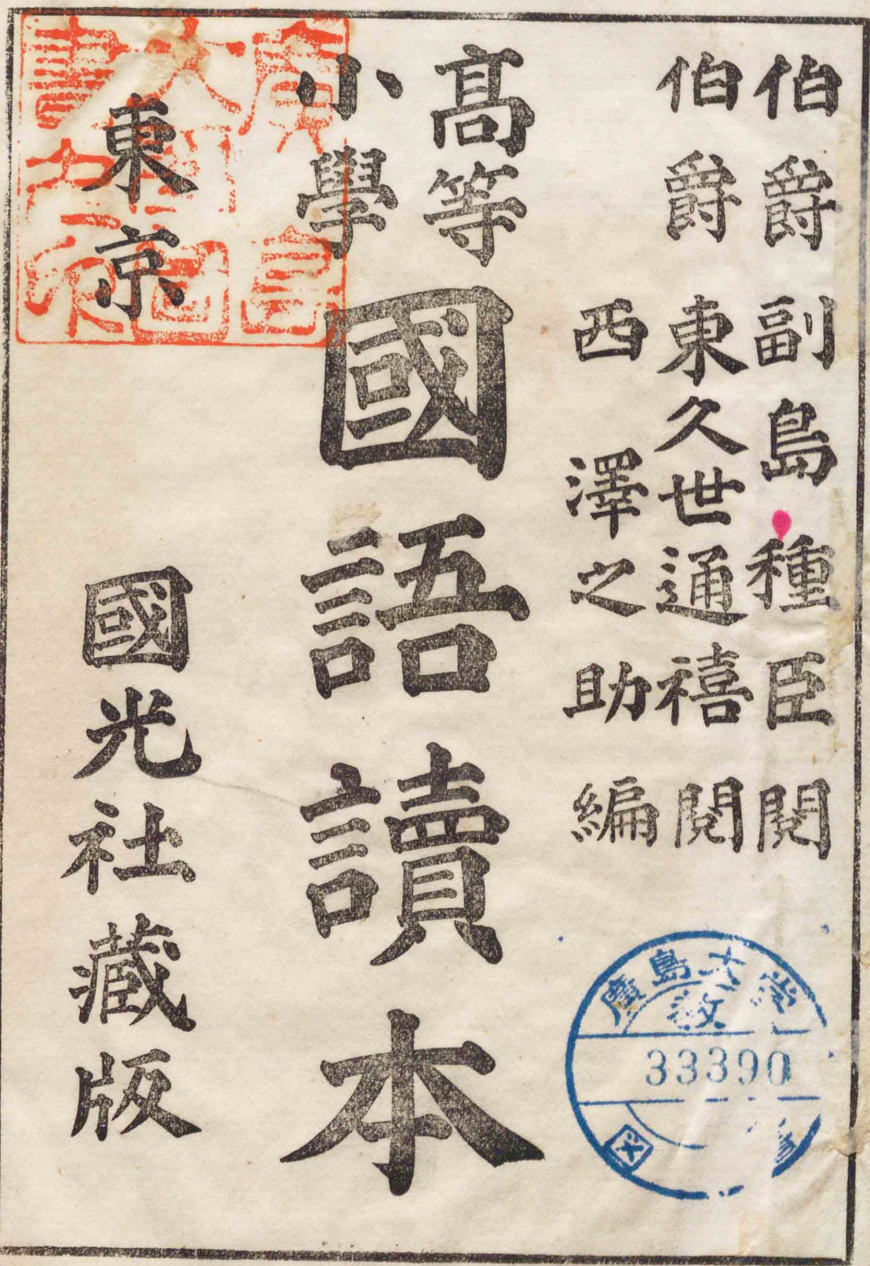 伯爵 副島種臣 閲
伯爵 東久世通禧 閲
西澤之助 編
高等
小學
國語讀本
東京 國光社藏版
廣島大
圖書印
廣島大学
教
33390
図